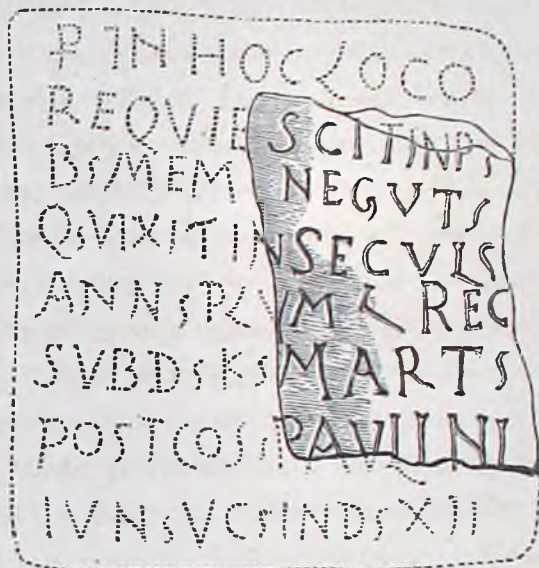 ☧ IN HOC LOCO
REQVIESCIT IN PS
BSMEM NEGVTS
QSVIXIT IN SECVLS
ANNSPLVM L REC
SVBDSKS MARTS
POSTCOSS PAVLINI
IVNSVCSINDSXII